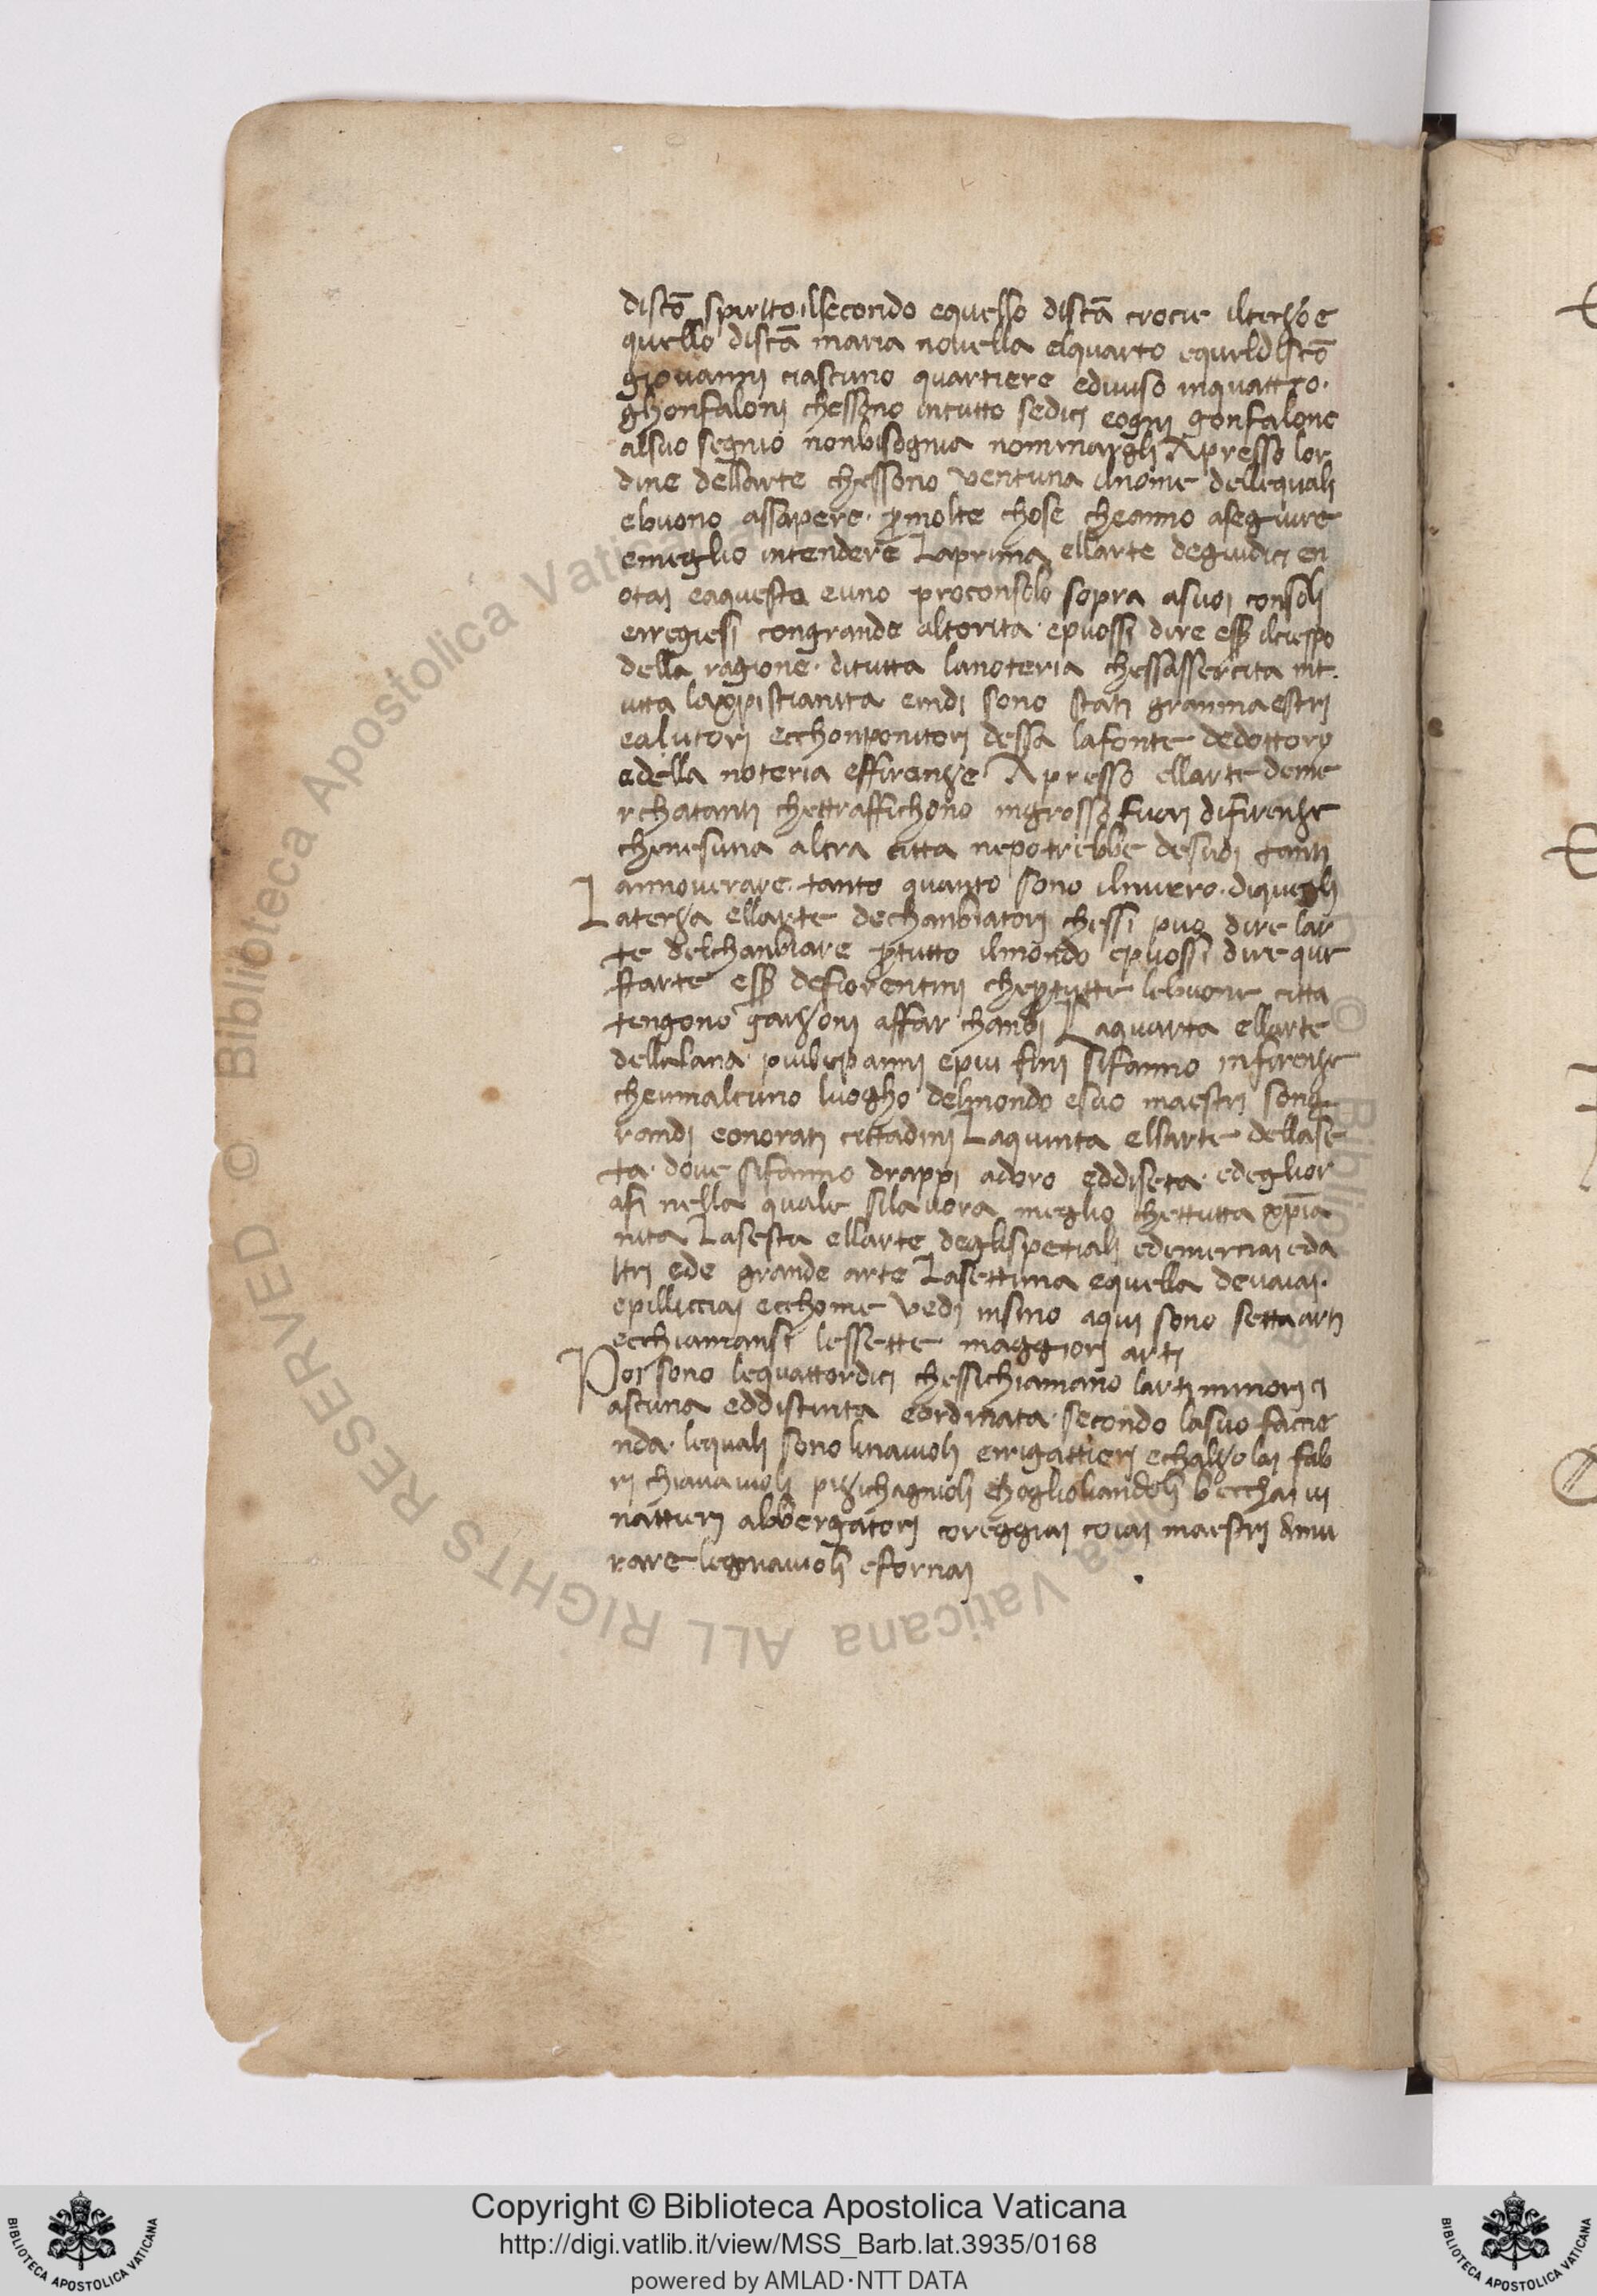 discō spirito ilsecondo equello discā crocie ilterzo e
quello discā maria nouella elquarto equeldiscō
giouannj ciascuno quartiere ediuiso inquattro·
ghonfalonj chessono intutto sedicj eognj gonfalone
alsuo segnio nonbisognia nominargli Apresso lor
dine dellarte chessono ventuna ilnome dellequalj
ebuono assapere· ꝑmolte chose cheanno aseguire
emeglio intendere Laprima ellarte degiudicj en
otaj eaquesta euno proconsolo sopra asuoj consolj
erregiesi congrande altorita· epuossi dire esß ilcieppo
della ragione· ditutta lanoteria chessassercita int·
utta laxpistianita eindj sono statj granmaestrj
ealutorj ecchonponitorj dessa lafonte dedottorj
edella noteria effirenze· Apresso ellarte deme
rchatantj chettraffichono ingrosso fuorj difirenze
chenesuna altra citta nepotrebbe desuoj tantj
annouerare· tanto quanto sono ilnuero· diquegli
Laterza ellarte dechanbiatorj chessi puo dire lar
te delchanbiare ꝑtutto ilmondo epuossi dire que
starte esß defiorentinj cheꝑtutte lebuone citta
tengono garzonj affar chanbj Laquarta ellarte
dellalana· piubepannj epiu finj sifanno infirenze
cheinnalcuno luogho delmondo esuo maestrj song
randj eonoratj cittadinj Laquinta ellarte dellase
ta· doue sifanno drappj adoro eddiseta· edeglior
afi nella quale silauora meglio chettutta xpīa
nita Lasesta ellarte deglispetialj edemerciaj eda
ltrj ede grande arte Lasettima equella deuaiaj·
epillicciaj ecchome vedj insino aquj sono settartj
ecchiamansi lessette maggiorj artj
Poi sono lequattordicj chessichiamano lartj minorj cj
ascuna eddistinta eordinata· secondo lasuo faccie
nda· lequalj sono linaiuolj errigattierj echalzolaj fab
rj chiauaiuolj pizichagniolj choglioliandolj becchaj ui
nattierj abbergatorj coreggiaj coiaj maestrj dmu
rare legnaiuolj efornaj
Copyright © Biblioteca Apostolica Vaticana
http://digi.vatlib.it/view/MSS_Barb.lat.3935/0168
powered by AMLAD·NTT DATA